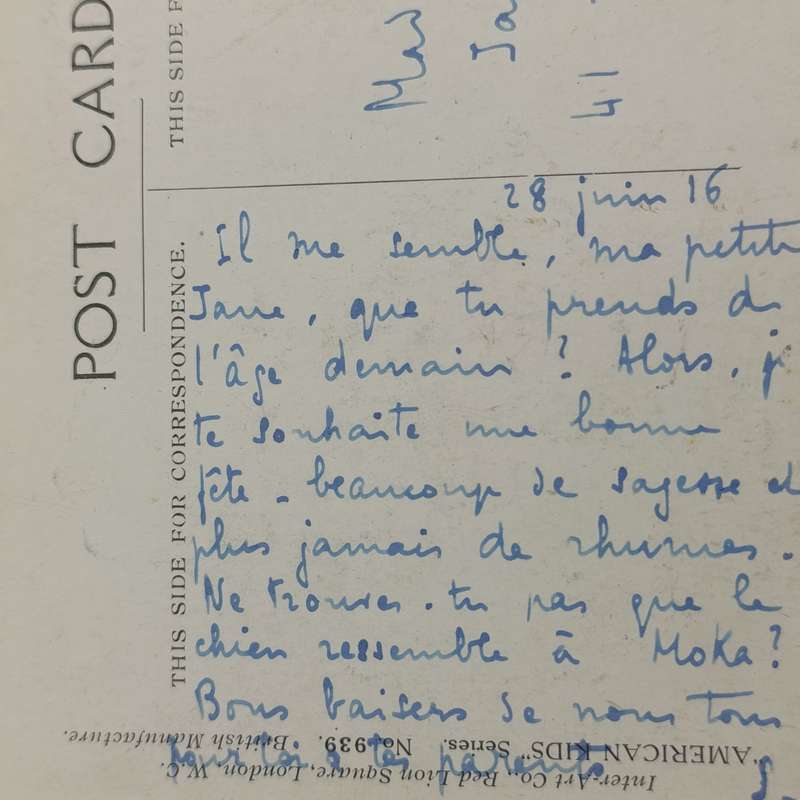 POST CARD
THIS SIDE F
THIS SIDE FOR CORRESPONDENCE.
28 juin 16
Il me semble, ma petit
Jane, que tu prends d
l'âge demain ? Alors, j
te souhaite une bonne
fête - beaucoup de sagesse et
plus jamais de rhumes.
Ne trouves-tu pas que le
chien ressemble à Moka?
Bons baisers de nous tous
pour toi à tes parents
"AMERICAN KIDS" Series. No. 939. British Manufacture.
Inter-Art Co., Red Lion Square, London, W.C.